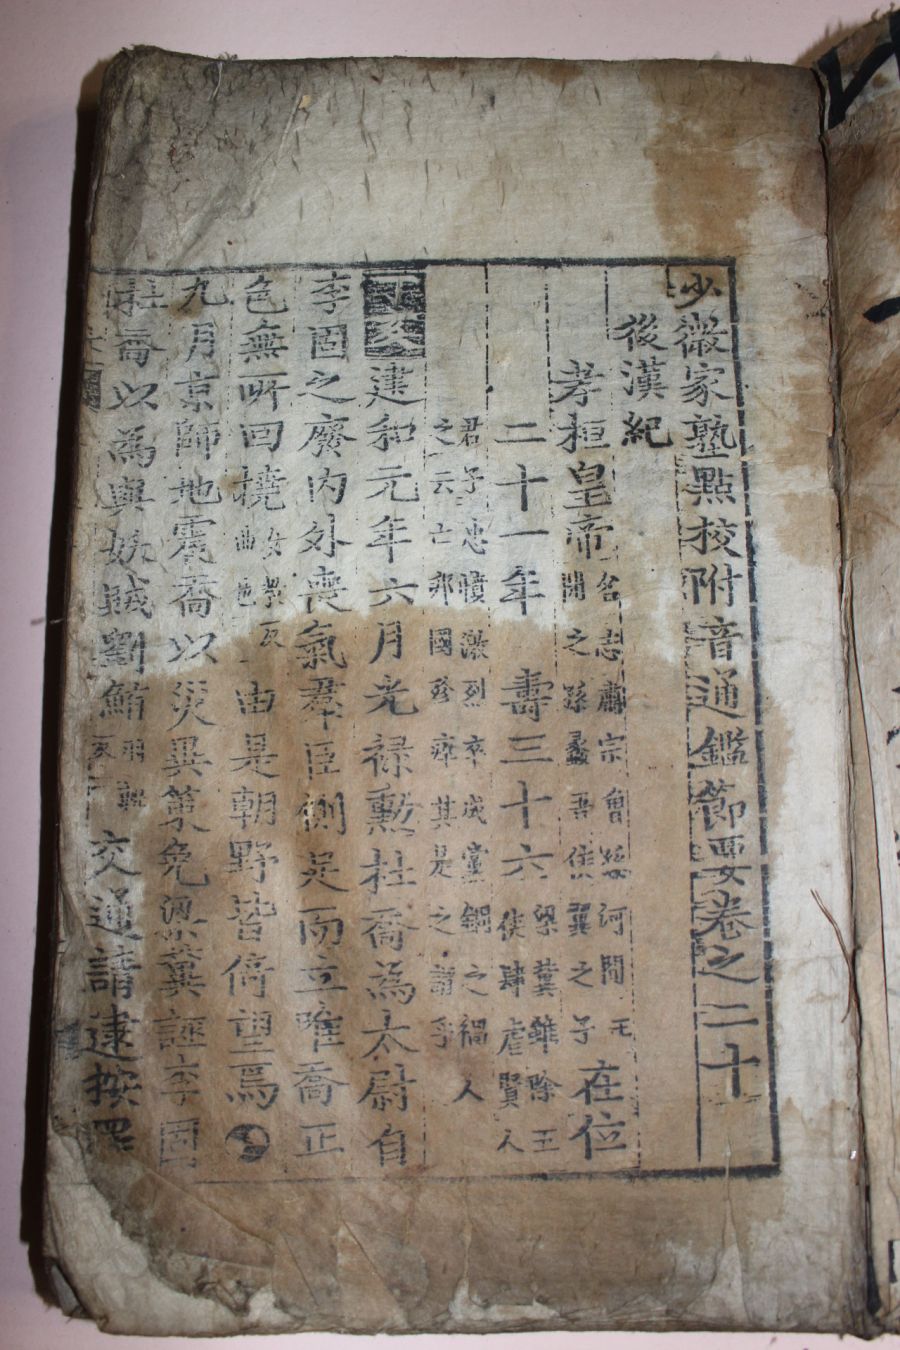 少微家塾點校附音通鑑節要卷之二十
後漢紀
孝桓皇帝 名志肅宗曾孫河間王開之孫蠡吾侯翼之子 在位
二十一年 壽三十六 梁冀雖除五侯肆虐賢人
君子忠憤激烈卒成黨錮之禍人之云亡邦國殄瘁其是之謂乎
建和元年六月光祿勳杜喬為太尉自
李固之廢內外喪氣羣臣側足而立唯喬正
色無所回橈 女教反曲也 由是朝野皆倚望焉
九月京師地震喬以災異策免梁冀誣李固
杜喬以為與妖賊劉鮪 交通請逮按罪